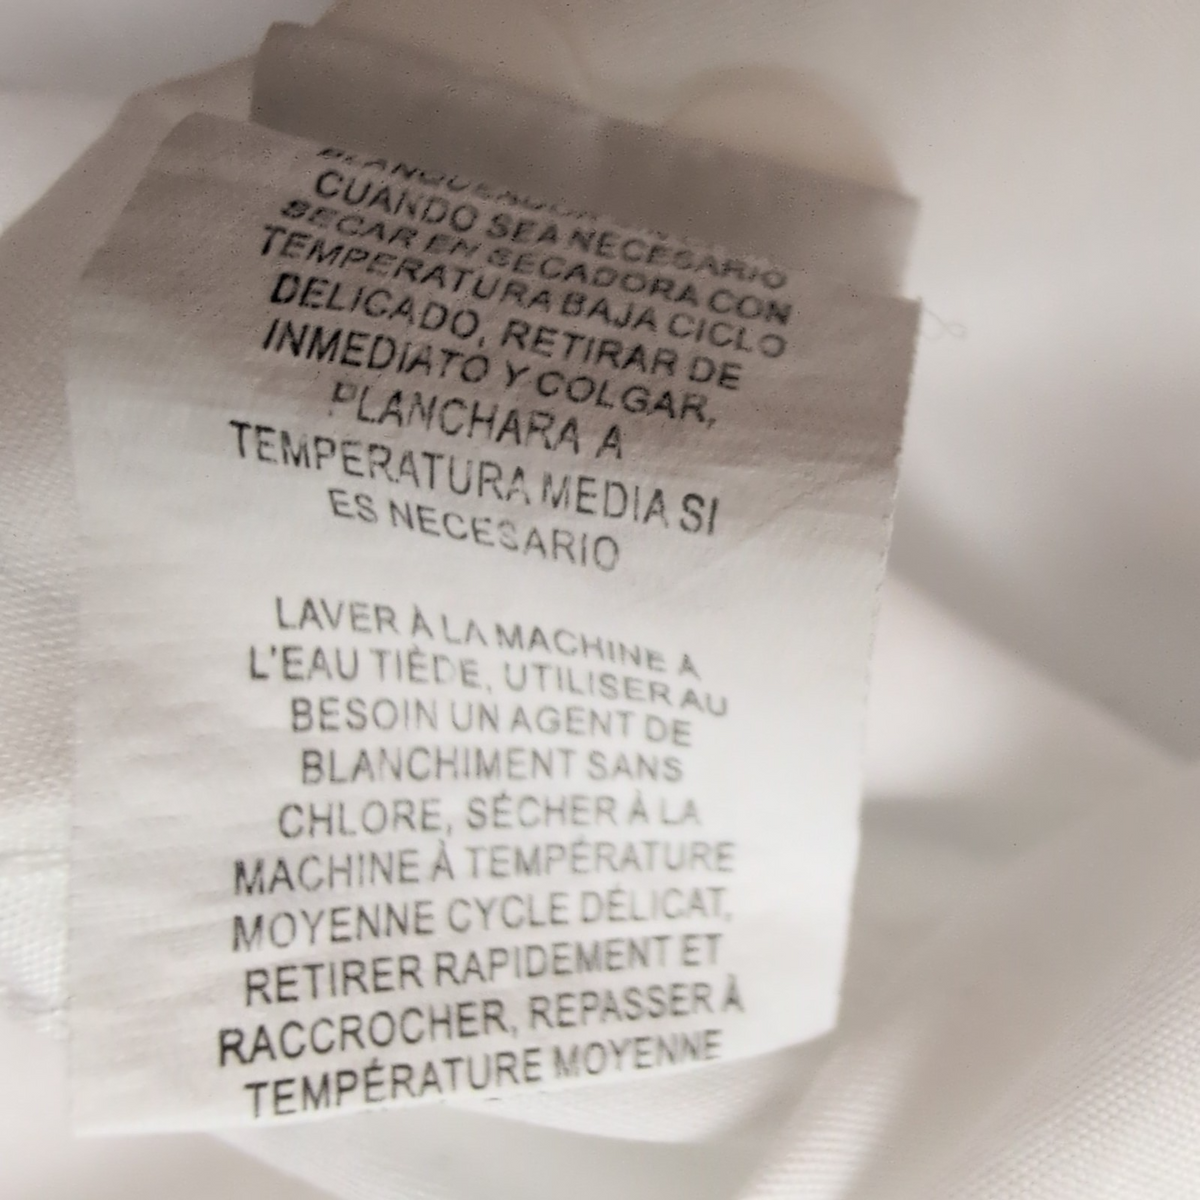 BLANQUEADOR
CUANDO SEA NECESARIO
SECAR EN SECADORA CON
TEMPERATURA BAJA CICLO
DELICADO, RETIRAR DE
INMEDIATO Y COLGAR,
PLANCHARA A
TEMPERATURA MEDIA SI
ES NECESARIO
LAVER À LA MACHINE A
L'EAU TIÈDE, UTILISER AU
BESOIN UN AGENT DE
BLANCHIMENT SANS
CHLORE, SÉCHER À LA
MACHINE À TEMPÉRATURE
MOYENNE CYCLE DÉLICAT,
RETIRER RAPIDEMENT ET
RACCROCHER, REPASSER À
TEMPÉRATURE MOYENNE